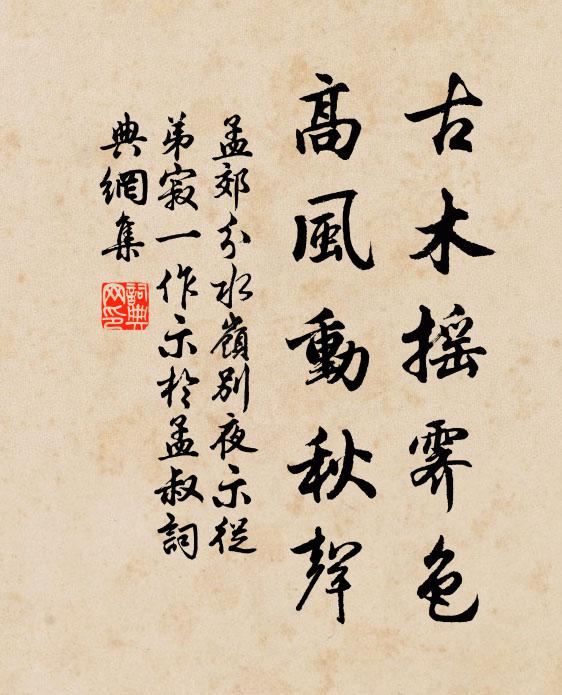 古木摇霽色
高風動秋聲
孟郊分水嶺別夜示從
弟寂一作示於孟叔詞
典網集
詞典
网印